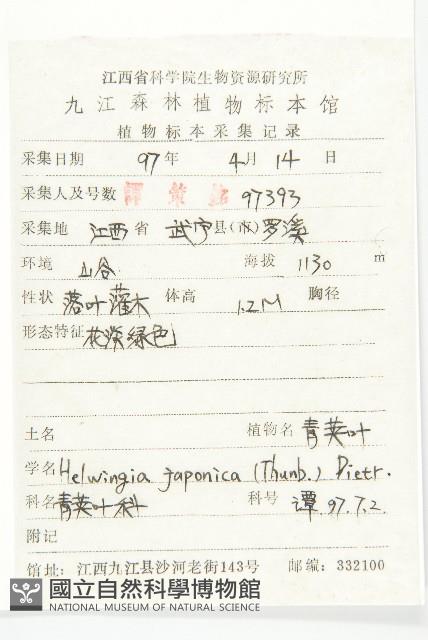 江西省科学院生物资源研究所
九江森林植物标本馆
植物标本采集记录
采集日期 97年 4月 14 日
采集人及号数 97393
采集地 江西省 武宁县(市)罗溪
环境 山谷 海拔 1130 m
性状 落叶灌木 体高 1.2M 胸径
形态特征 花淡绿色
土名 植物名 青荚叶
学名 Helwingia japonica (Thunb.) Dietr.
科名 青荚叶科 科号 谭.97.7.2.
附记
馆址:江西九江县沙河老街143号 邮编:332100
國立自然科學博物館
NATIONAL MUSEUM OF NATURAL SCIENCE